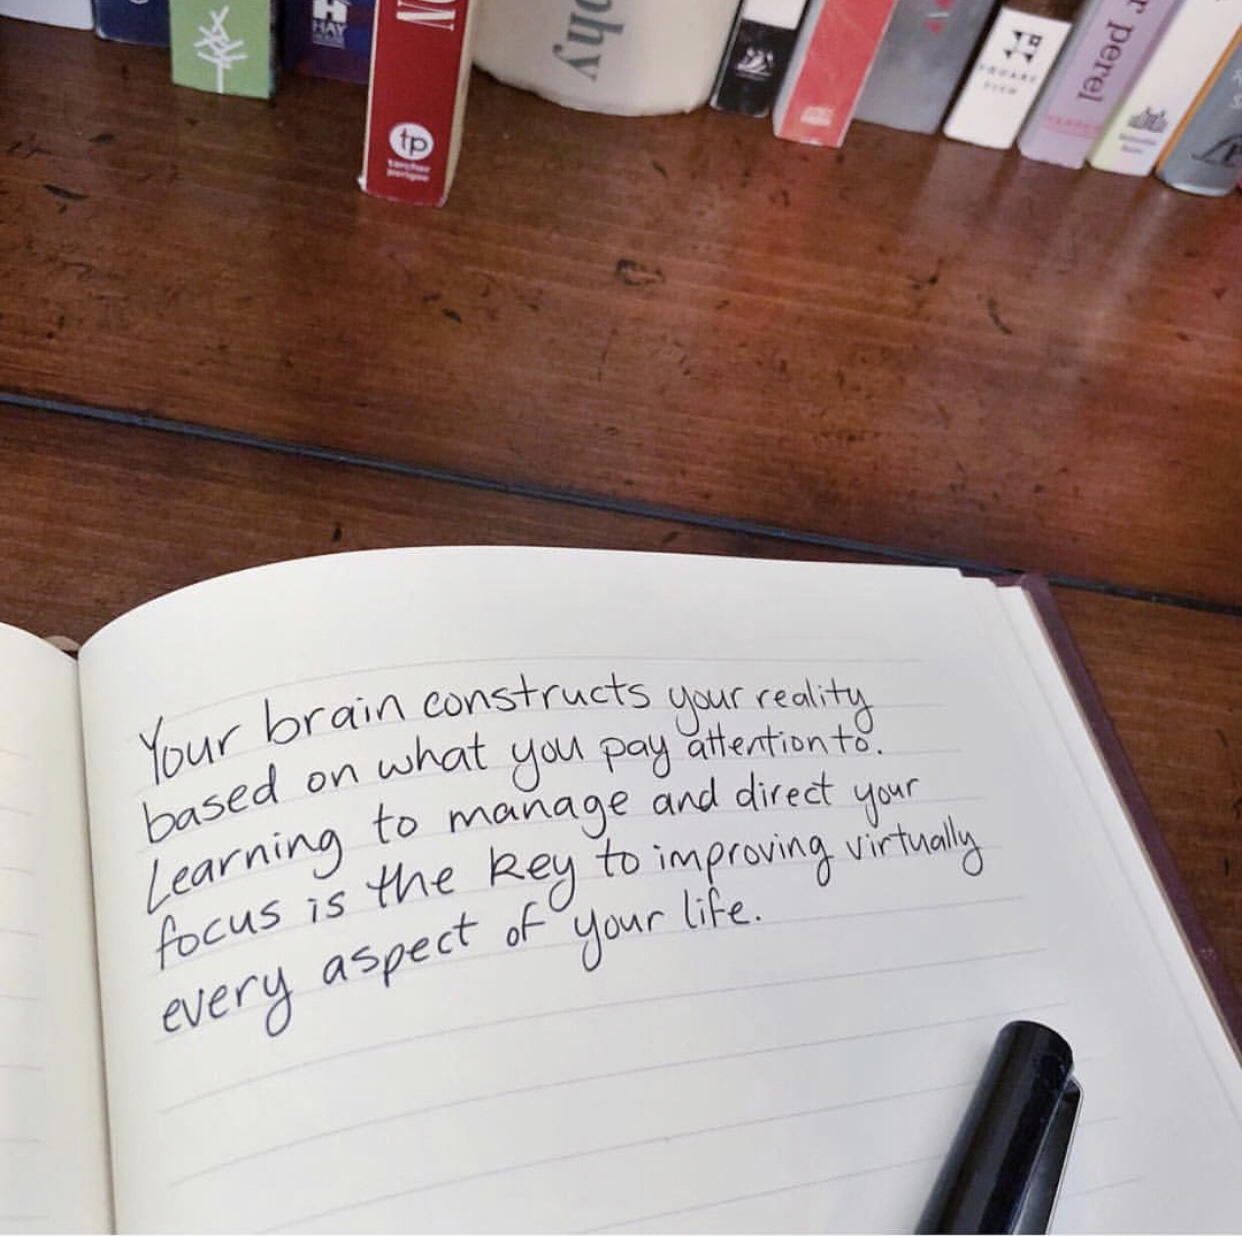 HAY
ON
tp
tarcher
perigee
phy
SQUARE
FISH
r perel
Your brain constructs your reality
based on what you pay attention to.
Learning to manage and direct your
focus is the key to improving virtually
every aspect of your life.